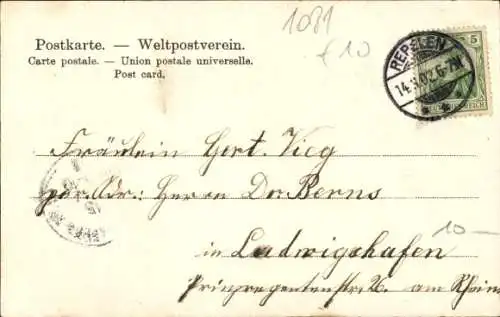 1081
€ 10
Postkarte. — Weltpostverein.
Carte postale. — Union postale universelle.
Post card.
5
REPELEN
14. 6-7N.
REICH
Fräulein Gert. Vieg
per. Adr.: Herrn Dr. Berns
10 —
in Ludwigshafen
Prinzregentenstr. 26. am Rhein